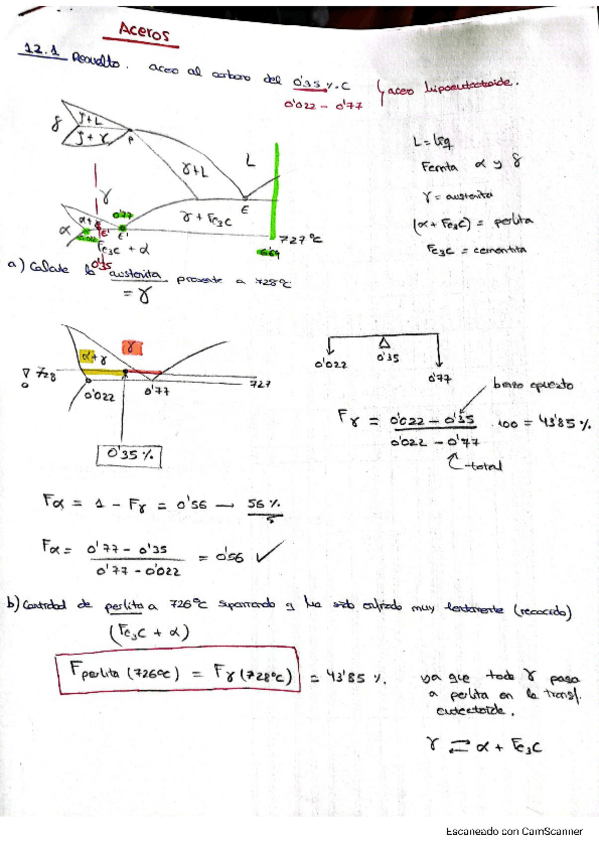 Aceros
12.1 Resuelto. acero al carbono del 0'35 %.C } acero hipoeutectoide.
0'022 – 0'77
δ
δ+L
δ+γ
P
γ+L
L
L = líq
Ferrita α y δ
γ
E
γ = austenita
α+γ
0'77
γ + Fe3C
(α + Fe3C) = perlita
α
E'
727ºC
Fe3C + α
6'67
Fe3C = cementita
0'35
a) Calcule la austenita presente a 728ºC
= γ
α+γ
γ
728
727
0'022
0'77
0'35 %
0'022
0'35
0'77
brazo opuesto
Fγ = 0'022 – 0'35 / 0'022 – 0'77 · 100 = 43'85 %
total
Fα = 1 – Fγ = 0'56 → 56 %
Fα = 0'77 – 0'35 / 0'77 – 0'022 = 0'56 ✓
b) Cantidad de perlita a 726ºC suponiendo q ha sido enfriado muy lentamente (recocido)
(Fe3C + α)
Fperlita (726ºC) = Fγ (728ºC) = 43'85 %.
ya que toda γ pasa
a perlita en la transf.
eutectoide.
γ ⇄ α + Fe3C
Escaneado con CamScanner